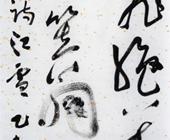 飛絕万
笠翁
詩江雪乙